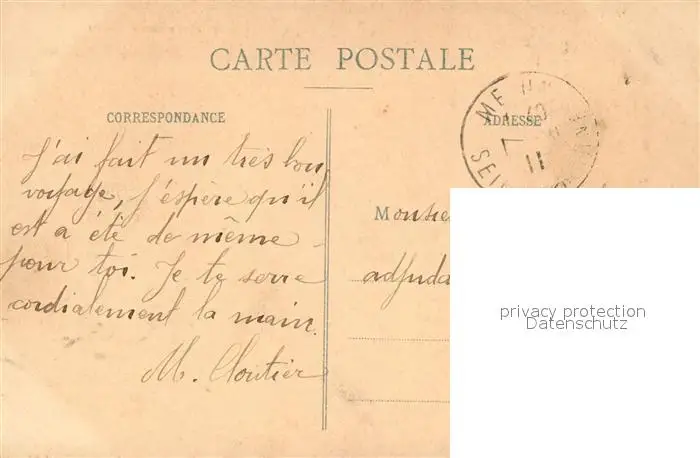 CARTE POSTALE
CORRESPONDANCE
ADRESSE
J'ai fait un très bon
voyage, j'éspère qu'il
est a été de même
pour toi. Je te serre
cordialement la main.
M. Cloutier
ME
7
11
SEI
Monsie
adjuda
privacy protection
Datenschutz